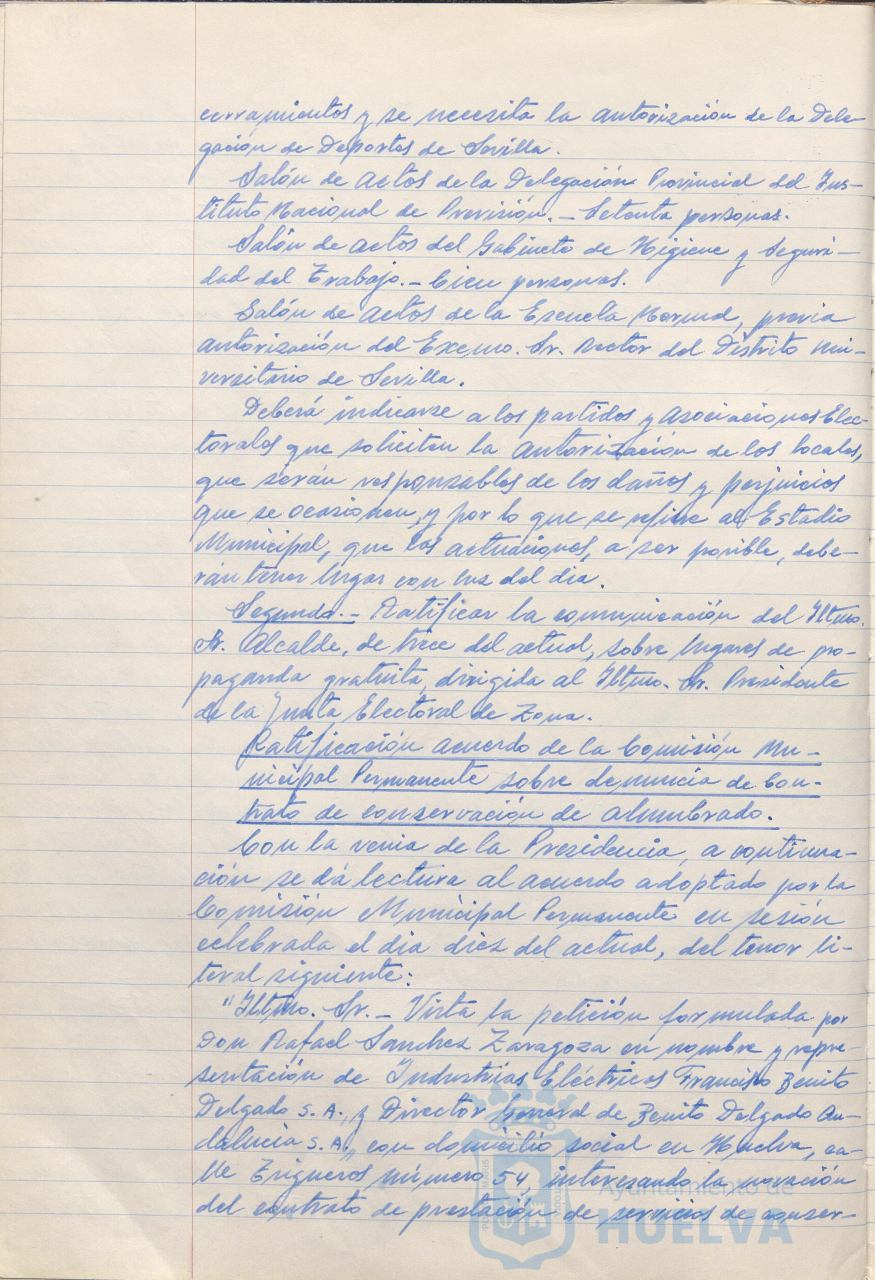 cerramientos y se necesita la autorización de la Dele-
gación de Deportes de Sevilla.
Salón de actos de la Delegación Provincial del Ins-
tituto Nacional de Previsión.- Setenta personas.
Salón de actos del Gabinete de Higiene y Seguri-
dad del Trabajo.- Cien personas.
Salón de actos de la Escuela Normal, previa
autorización del Excmo. Sr. Rector del Distrito Uni-
versitario de Sevilla.
Deberá indicarse a los partidos y Asociaciones Elec-
torales que soliciten la autorización de los locales,
que serán responsables de los daños y perjuicios
que se ocasionen, y por lo que se refiere al Estadio
Municipal, que las actuaciones, a ser posible, debe-
rán tener lugar con luz del dia.
Segundo.- Ratificar la comunicación del Iltmo.
Sr. Alcalde, de trece del actual, sobre lugares de pro-
paganda gratuita, dirigida al Iltmo. Sr. Presidente
de la Junta Electoral de Zona.
Ratificación acuerdo de la Comisión Mu-
nicipal Permanente sobre denuncia de Con-
trato de conservación de alumbrado.
Con la venia de la Presidencia, a continua-
ción se dá lectura al acuerdo adoptado por la
Comisión Municipal Permanente en sesión
celebrada el dia diez del actual, del tenor li-
teral siguiente:
"Iltmo. Sr. - Vista la petición formulada por
Don Rafael Sanchez Zaragoza en nombre y repre-
sentación de "Industrias Eléctricas Francisco Benito
Delgado S.A., y Director General de Benito Delgado An-
dalucia S.A., con domicilio social en Huelva, ca-
lle Trigueros número 54, interesando la novación
del contrato de prestación de servicios de conser-
Ayuntamiento de
HUELVA